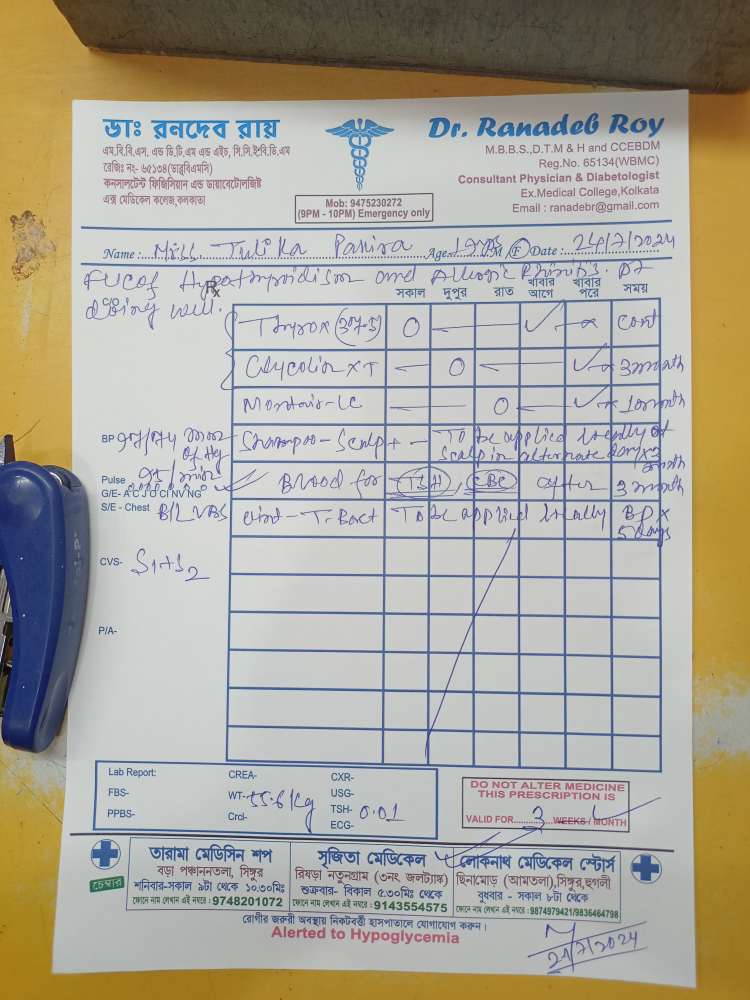 ডাঃ রনদেব রায়
এম.বি.বি.এস. এন্ড ডি.টি.এম এন্ড এইচ, সি.সি.ই.বি.ডি.এম
রেজিঃ নং- ৬৫১৩৪(ডাব্লুবিএমসি)
কনসালটেন্ট ফিজিসিয়ান এন্ড ডায়াবেটোলজিষ্ট
এক্স মেডিকেল কলেজ,কলকাতা
Mob: 9475230272
(9PM - 10PM) Emergency only
Dr. Ranadeb Roy
M.B.B.S.,D.T.M & H and CCEBDM
Reg.No. 65134(WBMC)
Consultant Physician & Diabetologist
Ex.Medical College,Kolkata
Email : ranadebr@gmail.com
Name : Miss. Tulika Age 19 yrs M/F Date : 24/7/2024
and Allergic Rhinitis. Pt
C/O doing well.
Rx
সকাল দুপুর রাত খাবার আগে খাবার পরে সময়
Thyrox (37.5) Cont
3 month
Montair-LC 1 month
BP 97/74 mm of Hg
Shampoo - Scalp + - To be applied locally at scalp in alternate day x 3 month
Pulse 95/min
Blood for TSH, CBC after 3 month
G/E- A C J O CI NV NG
S/E - Chest B/L VBS
T-Bact To be applied locally BD x 5 days
CVS- S1+S2
P/A-
Lab Report:
FBS-
PPBS-
CREA-
WT- 55.6 kg
Crcl-
CXR-
USG-
TSH- 0.01
ECG-
DO NOT ALTER MEDICINE
THIS PRESCRIPTION IS
VALID FOR 3 WEEKS / MONTH
চেম্বার
তারামা মেডিসিন শপ
বড়া পঞ্চাননতলা, সিঙ্গুর
শনিবার-সকাল ৯টা থেকে ১০.৩০মিঃ
ফোনে নাম লেখান এই নম্বরে : 9748201072
সৃজিতা মেডিকেল
রিষড়া নতুনগ্রাম (৩নং জলট্যাঙ্ক)
শুক্রবার- বিকাল ৫.৩০মিঃ থেকে
ফোনে নাম লেখান এই নম্বরে : 9143554575
লোকনাথ মেডিকেল স্টোর্স
ছিনামোড় (আমতলা),সিঙ্গুর,হুগলী
বুধবার - সকাল ৮টা থেকে
ফোনে নাম লেখান এই নম্বরে : 9874979421/9836464798
রোগীর জরুরী অবস্থায় নিকটবর্তী হাসপাতালে যোগাযোগ করুন।
Alerted to Hypoglycemia
24/7/2024